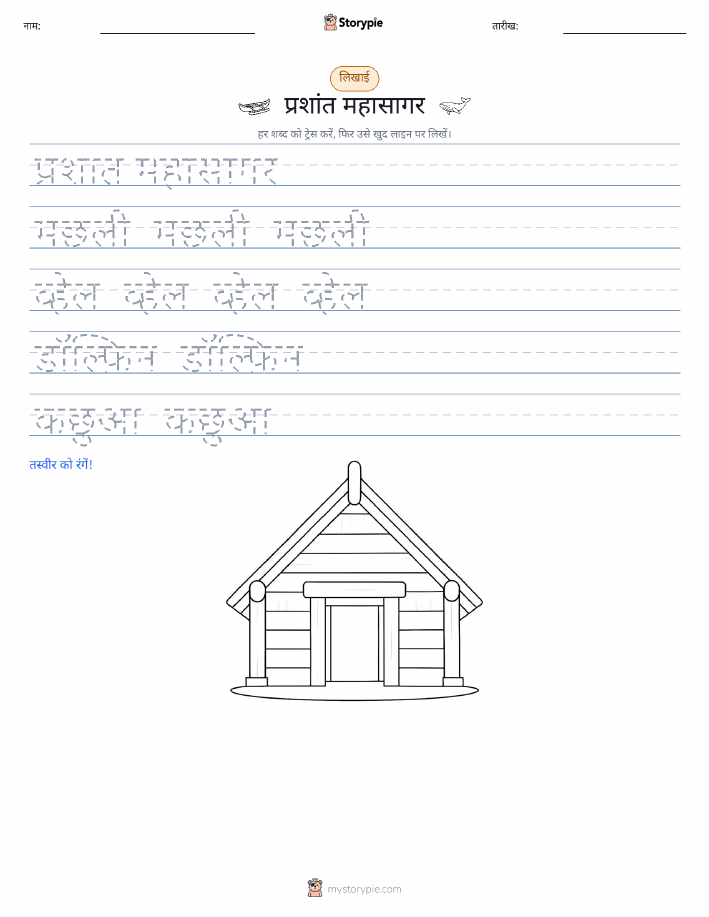 नाम:
Storypie
तारीख:
लिखाई
प्रशांत महासागर
हर शब्द को ट्रेस करें, फिर उसे खुद लाइन पर लिखें।
प्रशांत महासागर
मछली मछली मछली
व्हेल व्हेल व्हेल व्हेल
डॉल्फिन डॉल्फिन
कछुआ कछुआ
तस्वीर को रंगें!
mystorypie.com